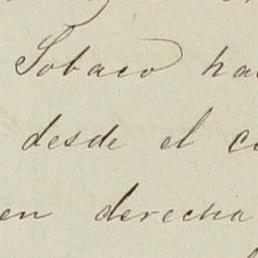 Sobaco ha
desde el c
en derecha